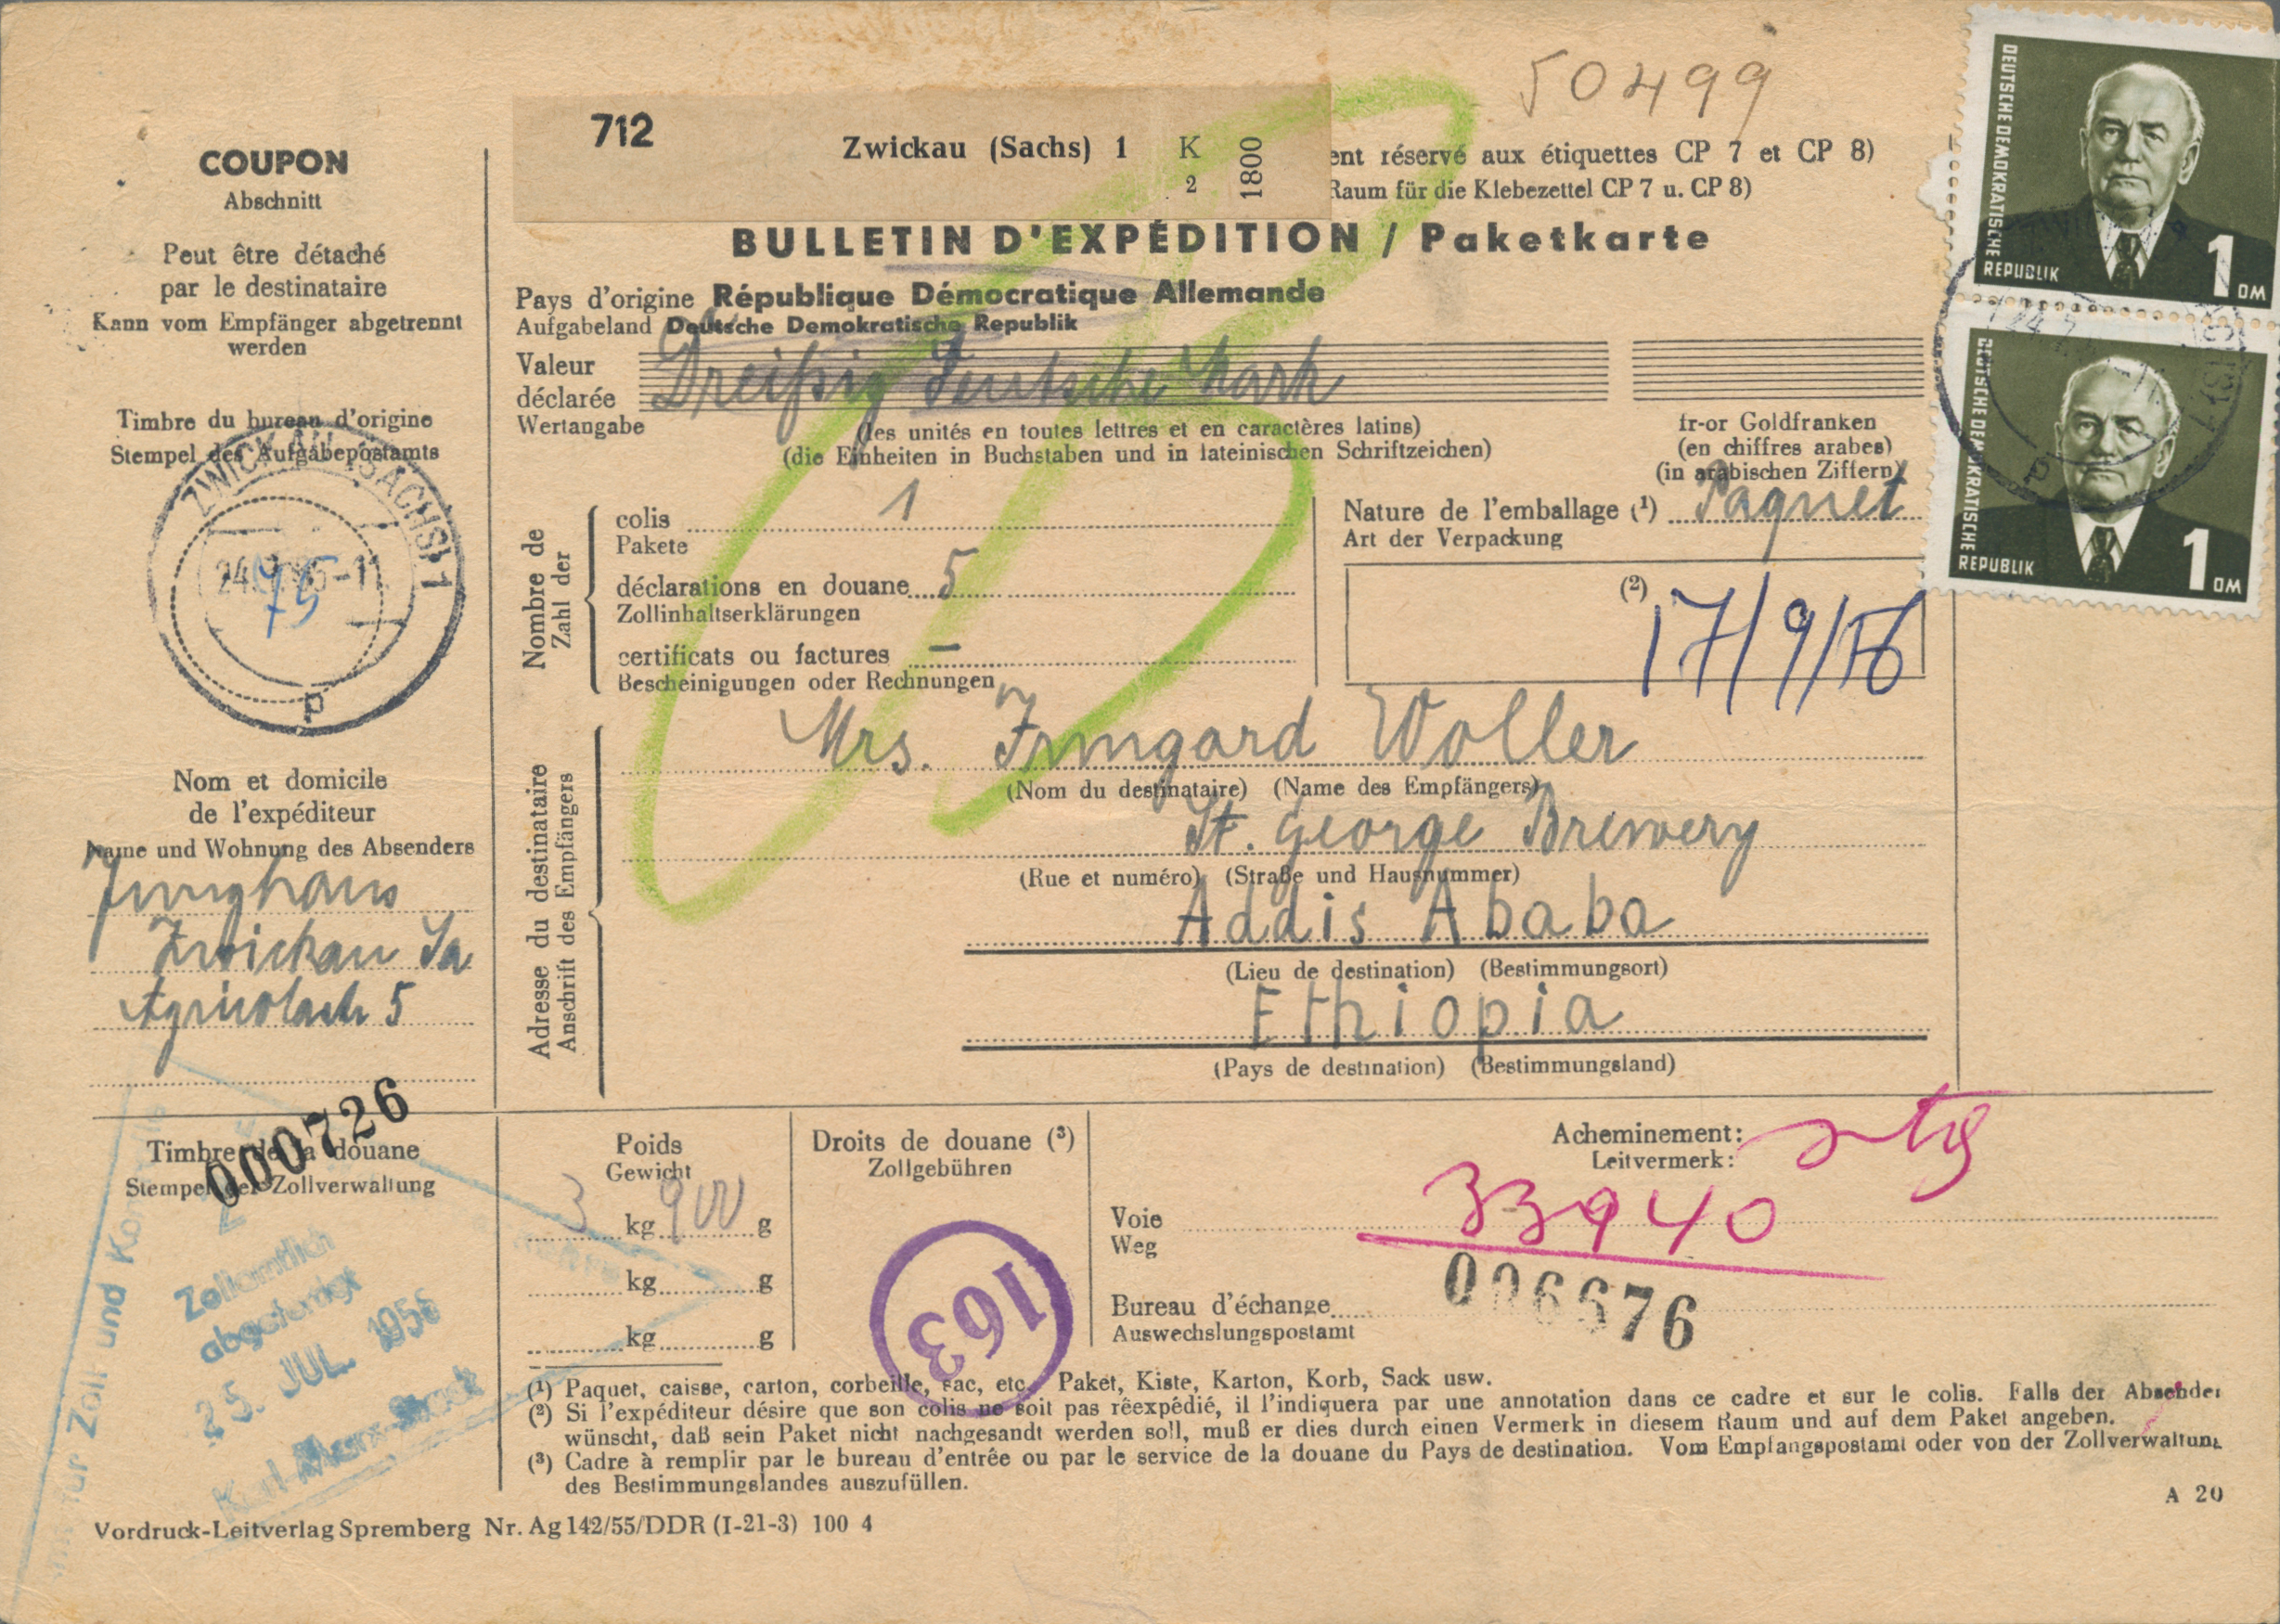 50499
712 Zwickau (Sachs) 1 K 2 1800
ent réservé aux étiquettes CP 7 et CP 8)
Raum für die Klebezettel CP 7 u. CP 8)
BULLETIN D'EXPÉDITION / Paketkarte
Pays d'origine République Démocratique Allemande
Aufgabeland Deutsche Demokratische Republik
Valeur déclarée
Wertangabe
Dreißig Deutsche Mark
(les unités en toutes lettres et en caractères latins)
(die Einheiten in Buchstaben und in lateinischen Schriftzeichen)
fr-or Goldfranken
(en chiffres arabes)
(in arabischen Ziffern)
COUPON
Abschnitt
Peut être détaché
par le destinataire
Kann vom Empfänger abgetrennt
werden
Timbre du bureau d'origine
Stempel des Aufgabepostamts
ZWICKAU (SACHS) 1
P
75
Nom et domicile
de l'expéditeur
Name und Wohnung des Absenders
Junghans
Zwickau Sa
5
Nombre de
Zahl der
colis 1
Pakete
déclarations en douane 5
Zollinhaltserklärungen
certificats ou factures –
Bescheinigungen oder Rechnungen
Nature de l'emballage (¹) Paquet
Art der Verpackung
(2)
17/9/56
Adresse du destinataire
Anschrift des Empfängers
Mrs. Irmgard Woller
(Nom du destinataire) (Name des Empfängers)
St. George Brewery
(Rue et numéro) (Straße und Hausnummer)
Addis Ababa
(Lieu de destination) (Bestimmungsort)
Ethiopia
(Pays de destination) (Bestimmungsland)
DEUTSCHE DEMOKRATISCHE
REPUBLIK
1 DM
DEUTSCHE DEMOKRATISCHE
REPUBLIK
1 DM
000726
Timbre de la douane
Stempel der Zollverwaltung
für Zoll und
Zollamtlich
abgefertigt
25. JUL. 1956
Karl-Marx-Stadt
Poids
Gewicht
3 kg 900 g
kg g
kg g
Droits de douane (³)
Zollgebühren
163
Acheminement:
Leitvermerk:
33940
Voie
Weg
Bureau d'échange
Auswechslungspostamt
006676
(¹) Paquet, caisse, carton, corbeille, sac, etc. Paket, Kiste, Karton, Korb, Sack usw.
(²) Si l'expéditeur désire que son colis ne soit pas réexpédié, il l'indiquera par une annotation dans ce cadre et sur le colis. Falls der Absender
wünscht, daß sein Paket nicht nachgesandt werden soll, muß er dies durch einen Vermerk in diesem Raum und auf dem Paket angeben.
(³) Cadre à remplir par le bureau d'entrée ou par le service de la douane du Pays de destination. Vom Empfangspostamt oder von der Zollverwaltung
des Bestimmungslandes auszufüllen.
A 20
Vordruck-Leitverlag Spremberg Nr. Ag 142/55/DDR (I-21-3) 100 4